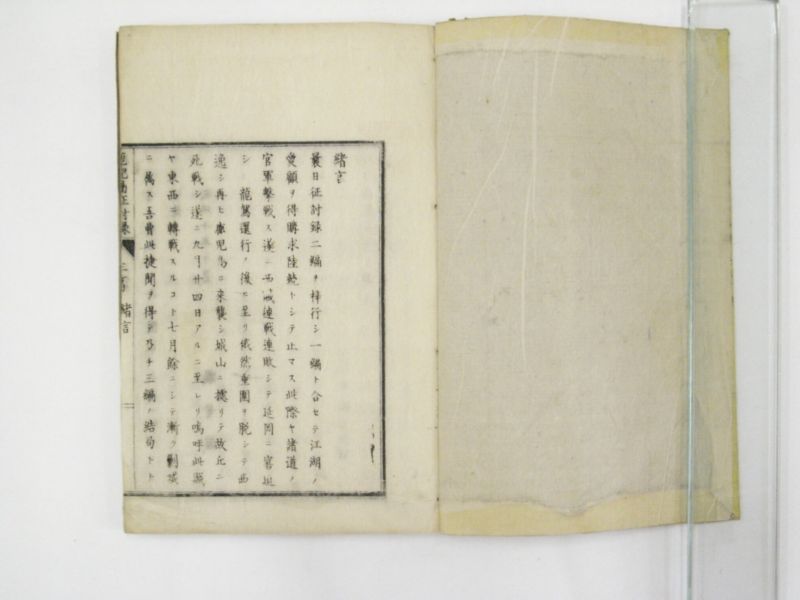 緒言
曩日征討録二編ヲ梓行シ一編ト合セテ江湖ノ
愛顧ヲ得購求陸続トシテ止マス此際ヤ諸道ノ
官軍撃戦ス遂ニ西賊連戦連敗シテ延岡ニ窘
シ龍駕還行ノ後ニ至リ俄然重囲ヲ脱シテ西
逸シ再ヒ鹿児島ニ来襲シ城山ニ據リテ故丘ニ
死戦シ遂ニ九月廿四日アルニ至レリ嗚呼此賊
ヤ東西ニ轉戦スルコト七月餘ニシテ漸ク剿滅
ニ属ス吾曹此捷聞ヲ得テ乃チ三編ノ結局トト
鹿児島征討録 三編 緒言